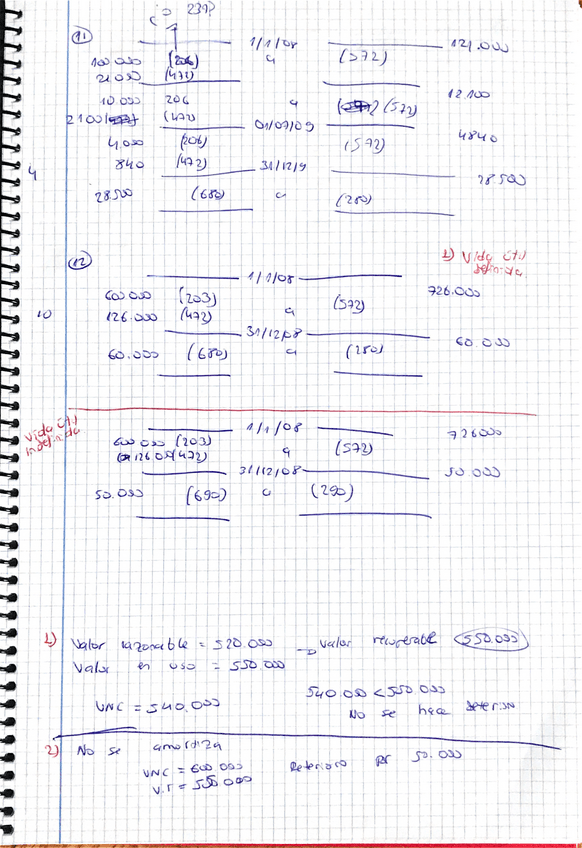 ¿o 239?
11
1/1/08
100.000 (206) a (572) 121.000
21.000 (472)
10.000 206 a (572) 12.100
2100 (472)
01/07/09
4.000 (206) (572) 4840
840 (472)
4
31/12/9
28.500 (680) a (280) 28.500
12
1) Vida útil definida
1/1/08
600.000 (203) a (572) 726.000
10
126.000 (472)
31/12/08
60.000 (680) a (280) 60.000
Vida útil indefinida
1/1/08
600.000 (203) a (572) 726000
126.000 (472)
31/12/08
50.000 (690) a (290) 50.000
1) Valor razonable = 520.000 → Valor recuperable 550.000
Valor en uso = 550.000
VNC = 540.000 540.000 < 550.000
No se hace deterioro
2) No se amortiza
VNC = 600.000 Deterioro por 50.000
V.r = 550.000